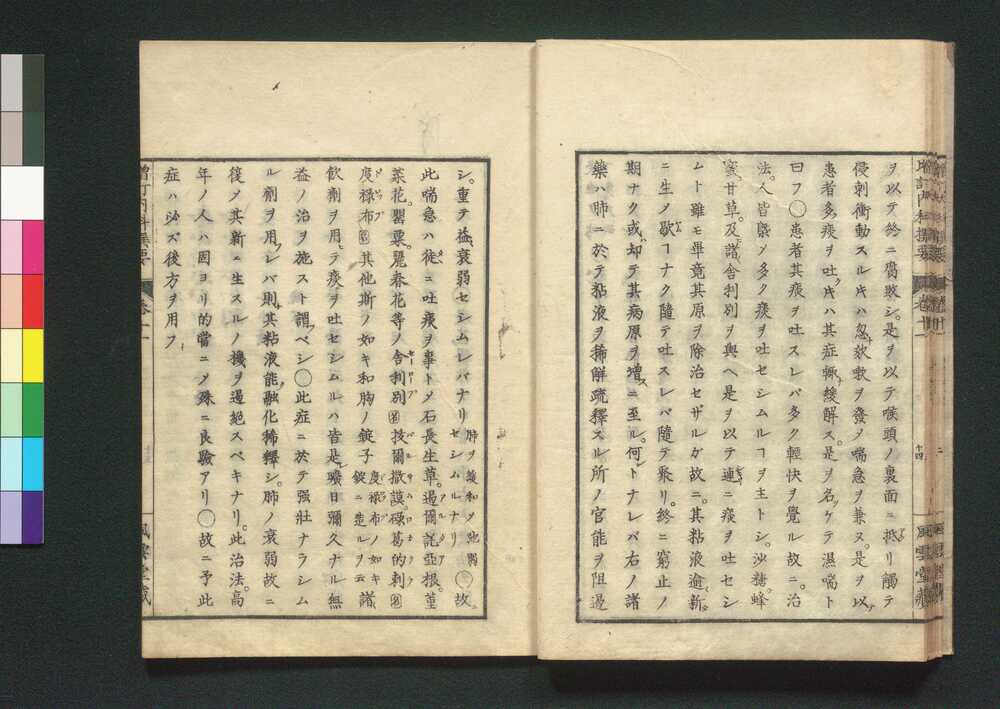 ヲ以テ終ニ腐敗シ。是ヲ以テ喉頭ノ裏面ニ抵リ觸テ
侵刺衝動スルキハ忽欬嗽ヲ發ノ喘急ヲ兼ヌ。是ヲ以
患者多痰ヲ吐クキハ其症輙緩解ス。是ヲ名ケテ濕喘ト
曰フ◯患者其痰ヲ吐スレバ多ク輕快ヲ覺ル故ニ。治
法。人皆務メ多ク痰ヲ吐セシムルヿヲ主トシ。沙糖。蜂
蜜。甘草。及諸舎利別ヲ與ヘ是ヲ以テ連ニ痰ヲ吐セシ
ムト雖モ畢竟其原ヲ除治セザルガ故ニ。其粘液逾新
ニ生ノ歇ムヿナク隨テ吐スレバ隨テ聚リ。終ニ窮止ノ
期ナク或却テ其病原ヲ增スニ至ル。何トナレバ右ノ諸
藥ハ肺ニ於テ粘液ヲ稀解疏釋スル所ノ官能ヲ阻遏
增訂内科撰要 卷十一
十四
風雲堂藏
シ。重テ益衰弱セシムレバナリ 肺ヲ緩和ノ弛弱セシムルナリ ◯故ニ
此喘急ハ徒ニ吐痰ヲ事トメ石長生草。過爾託亞根。菫
菜花。罌粟。麗春花等ノ舎利別
度祿布 其他斯ノ如キ和胸ノ錠子 度祿布ノ如キ諸錠ニ造ルヲ云
飲劑ヲ用テ痰ヲ吐セシムルハ皆是曠日彌久ナル無
益ノ治ヲ施スト謂ベシ◯此症ニ於テ强壯ナラシム
ル劑ヲ用レバ則其粘液能融化稀釋シ。肺ノ衰弱故ニ
復ノ其新ニ生スルノ機ヲ遏絕スベキナリ。此治法。高
年ノ人ハ因ヨリ的當ニメ殊ニ良驗アリ◯故ニ予此
症ハ必ズ後方ヲ用フ
增訂内科撰要 卷十一
風雲堂藏